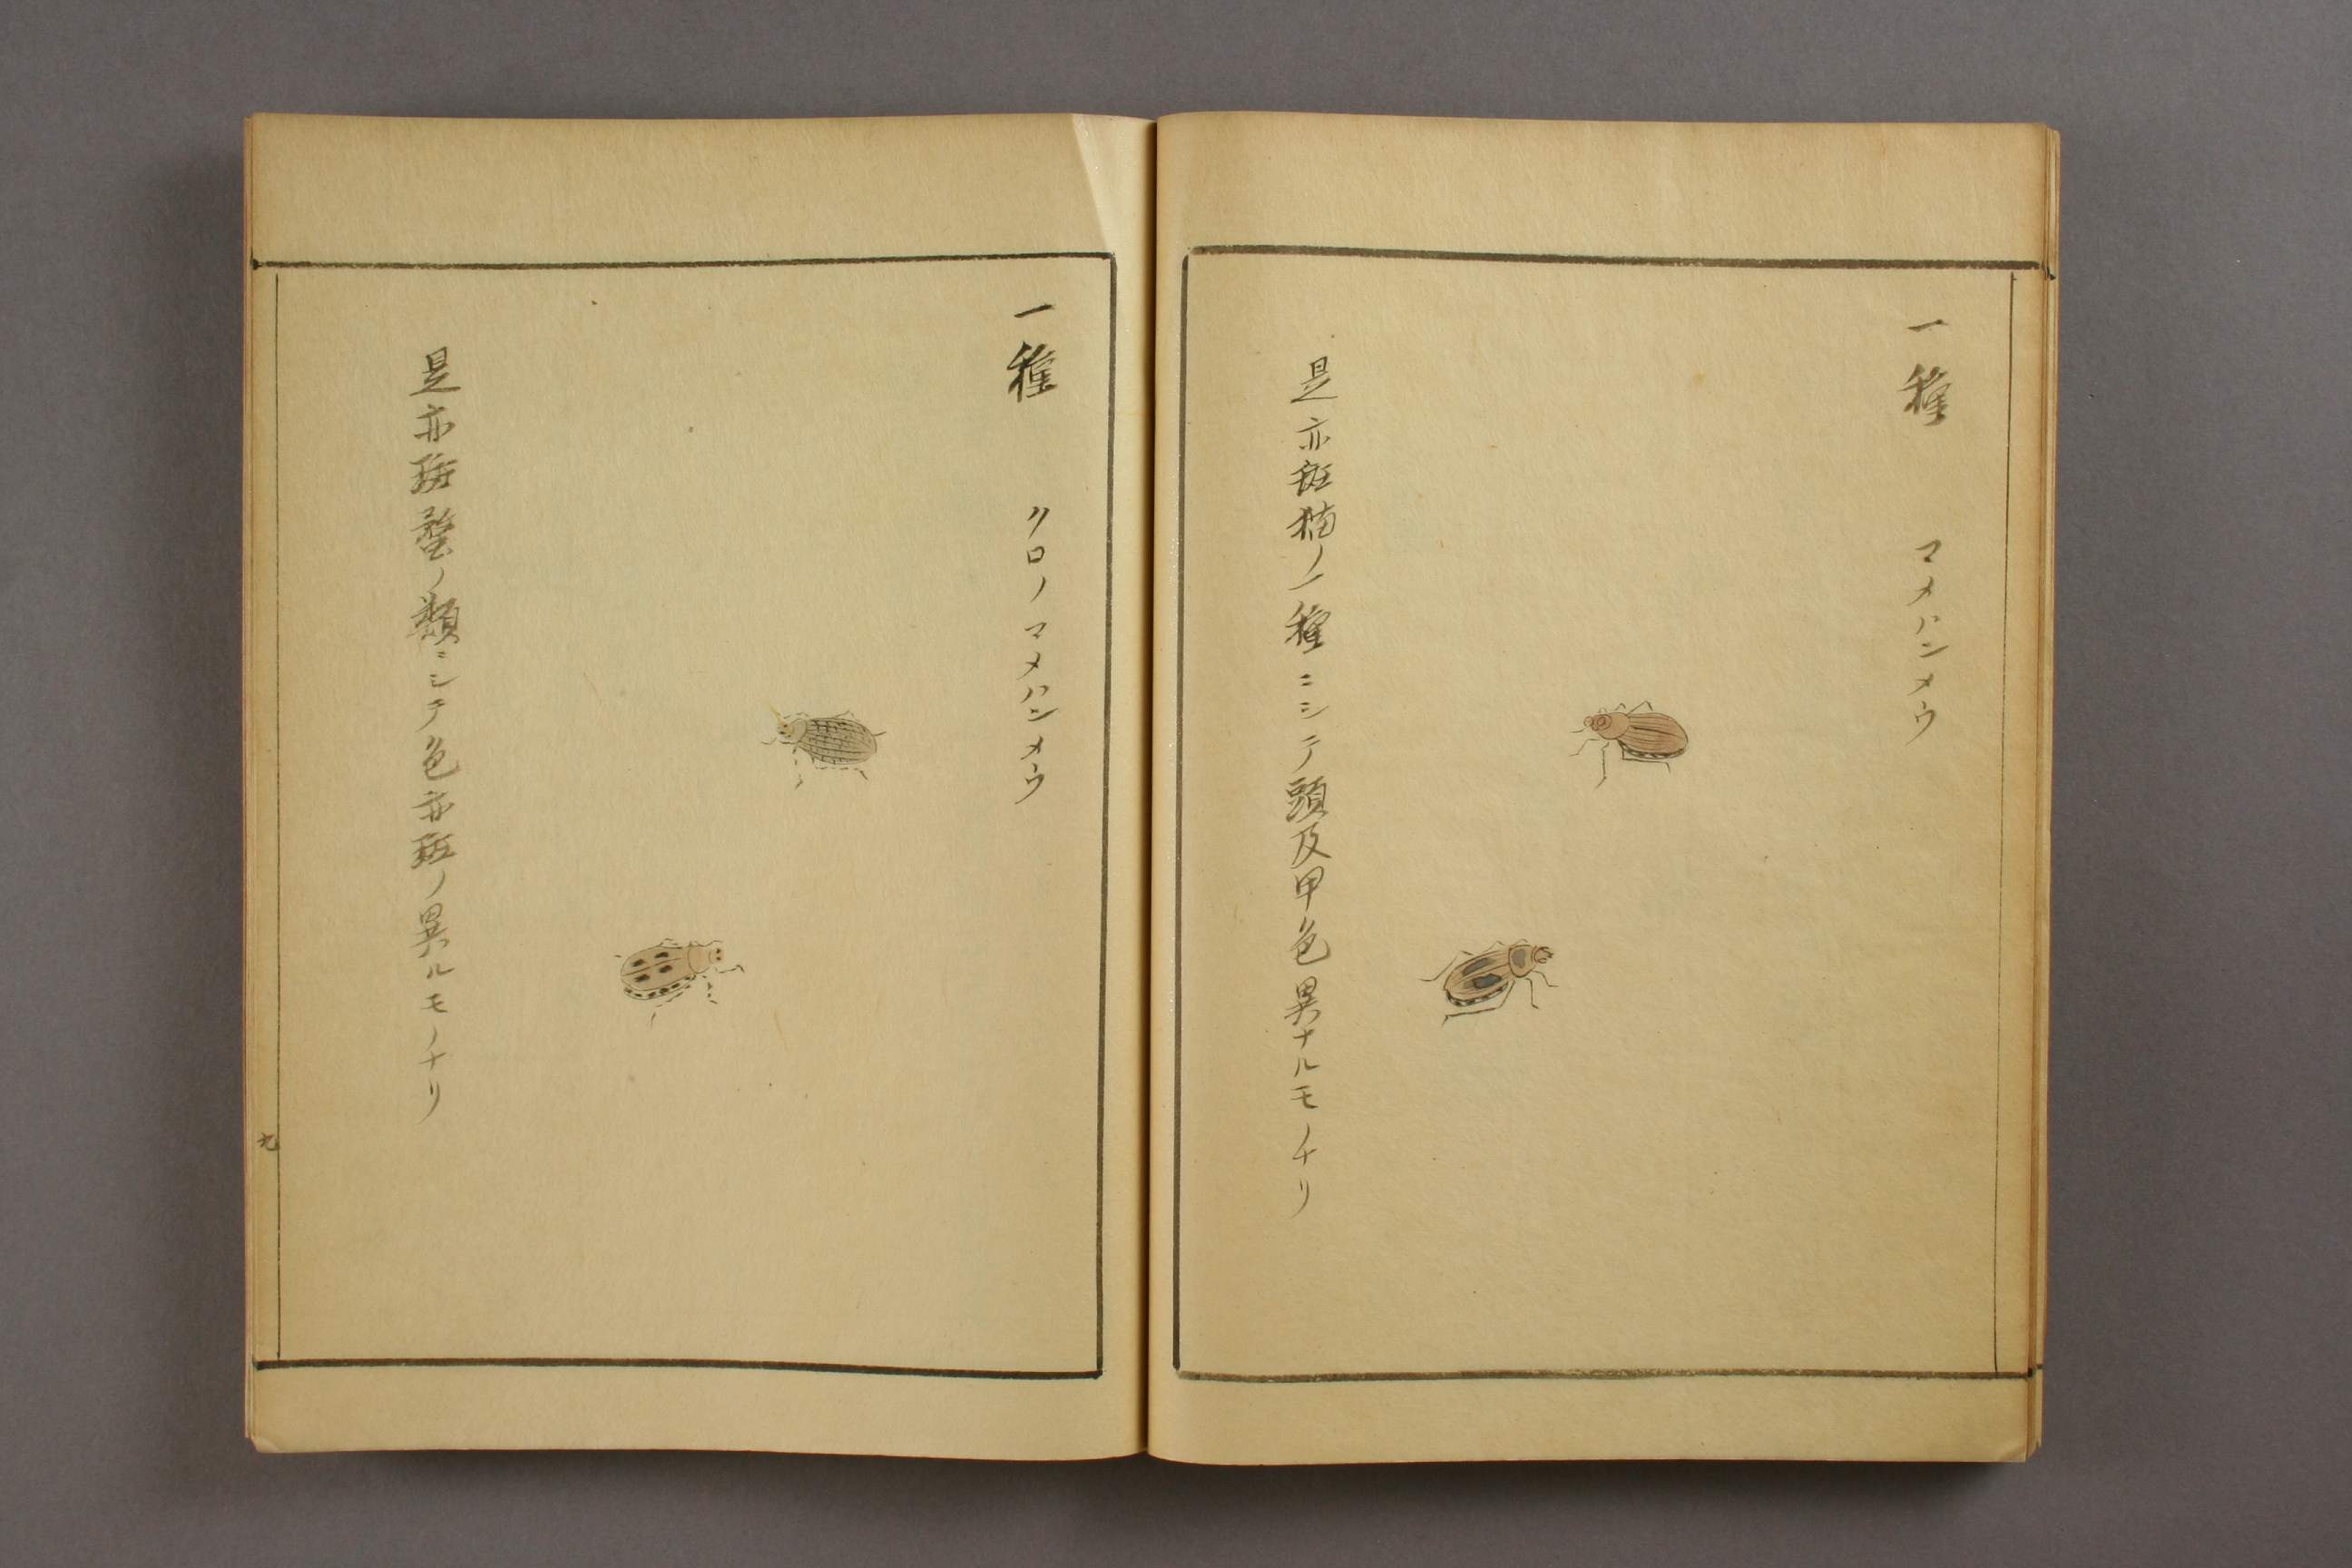 一種　マメハンメウ
是亦斑猫ノ一種ニシテ頭及甲色異ナルモノナリ
一種　クロノマメハンメウ
是亦斑蝥ノ類ニシテ色亦斑ノ異ルモノナリ
九